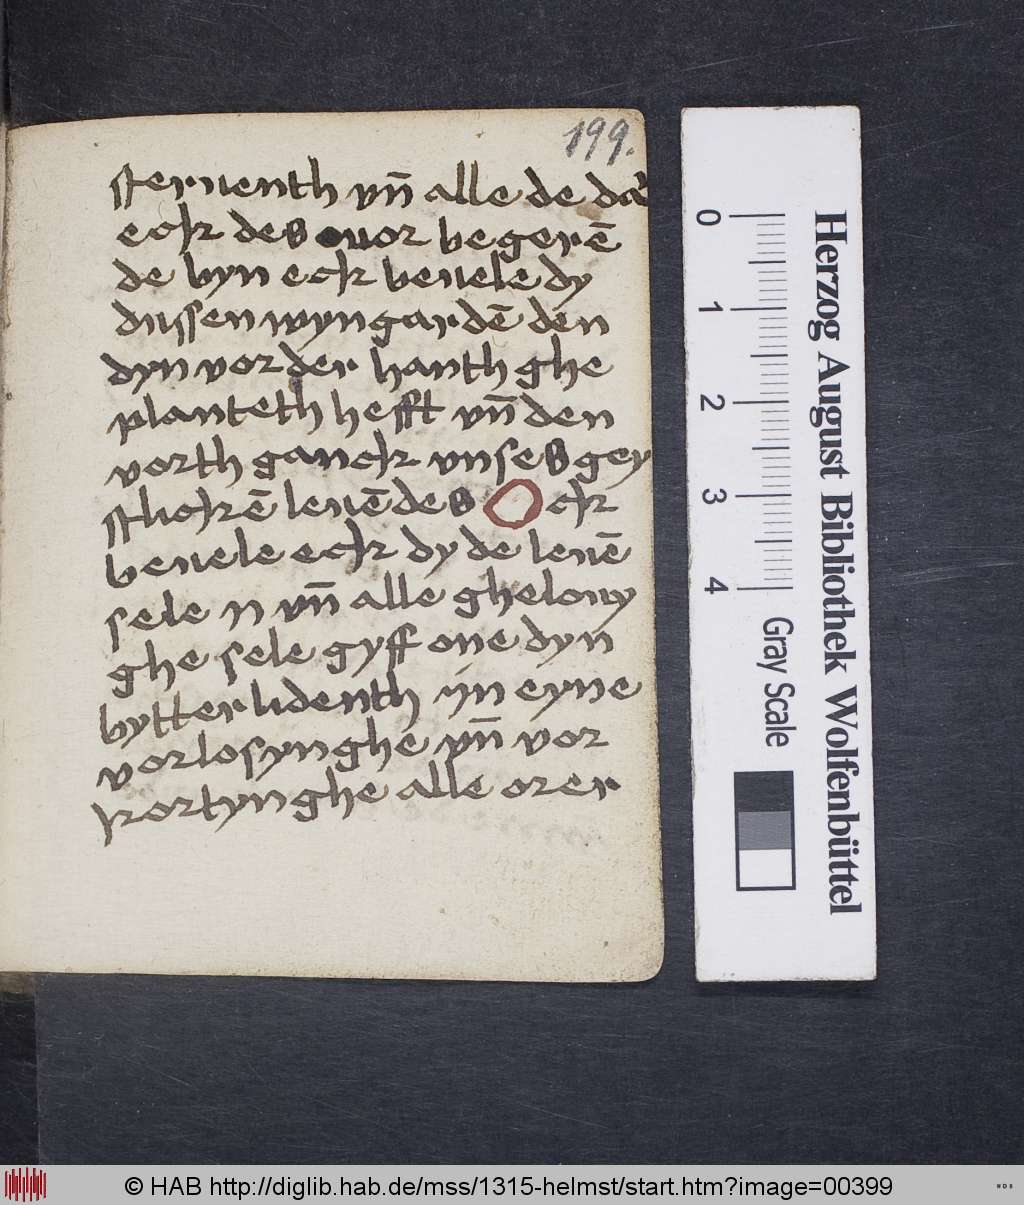 199.
steruenth vn̄ alle de dar
eck des ouor begerē
de byn eck beuele dy
dussen wyngardē den
dyn vorder hanth ghe
planteth hefft vn̄ den
vorth ganck vnses gey
stlickē leuēdes Ock
beuele eck dy de leuē
sele n vn̄ alle ghelouy
ghe sele gyff one dyn
bytter lidenth ijn eyne
vorlosynghe vn̄ vor
kortynghe alle orer
0
1
2
3
4
Gray Scale
Herzog August Bibliothek Wolfenbüttel
© HAB http://diglib.hab.de/mss/1315-helmst/start.htm?image=00399